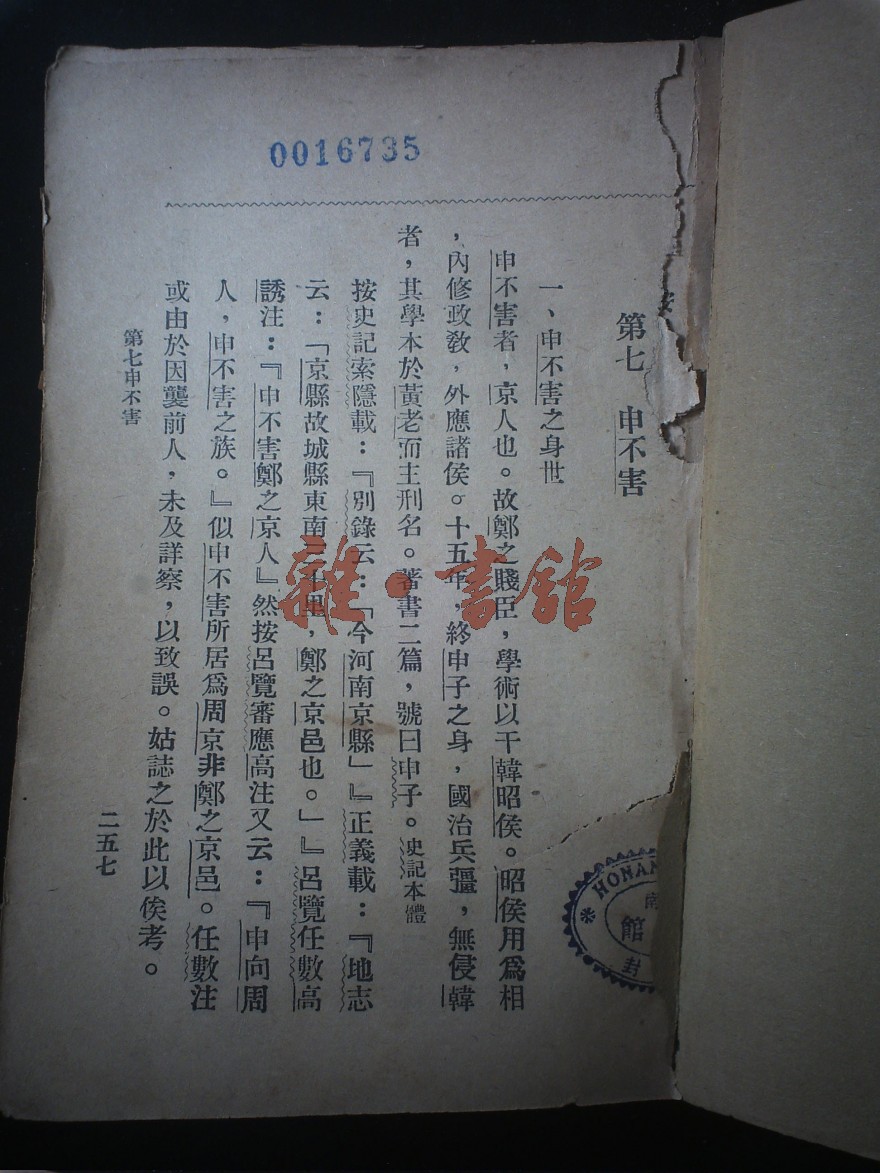 0016735
第七　申不害
一、申不害之身世
申不害者，京人也。故鄭之賤臣，學術以干韓昭侯。昭侯用爲相
，內修政敎，外應諸侯。十五年，終申子之身，國治兵彊，無侵韓
者，其學本於黃老而主刑名。著書二篇，號曰申子。史記本體
按史記索隱載：『別錄云：「今河南京縣」』正義載：『地志
云：「京縣故城縣東南二十里，鄭之京邑也。」』呂覽任數高
誘注：『申不害鄭之京人』然按呂覽審應高注又云：『申向周
人，申不害之族。』似申不害所居爲周京非鄭之京邑。任數注
或由於因襲前人，未及詳察，以致誤。姑誌之於此以俟考。
第七申不害
二五七
HONAN
館
封
雜·書館